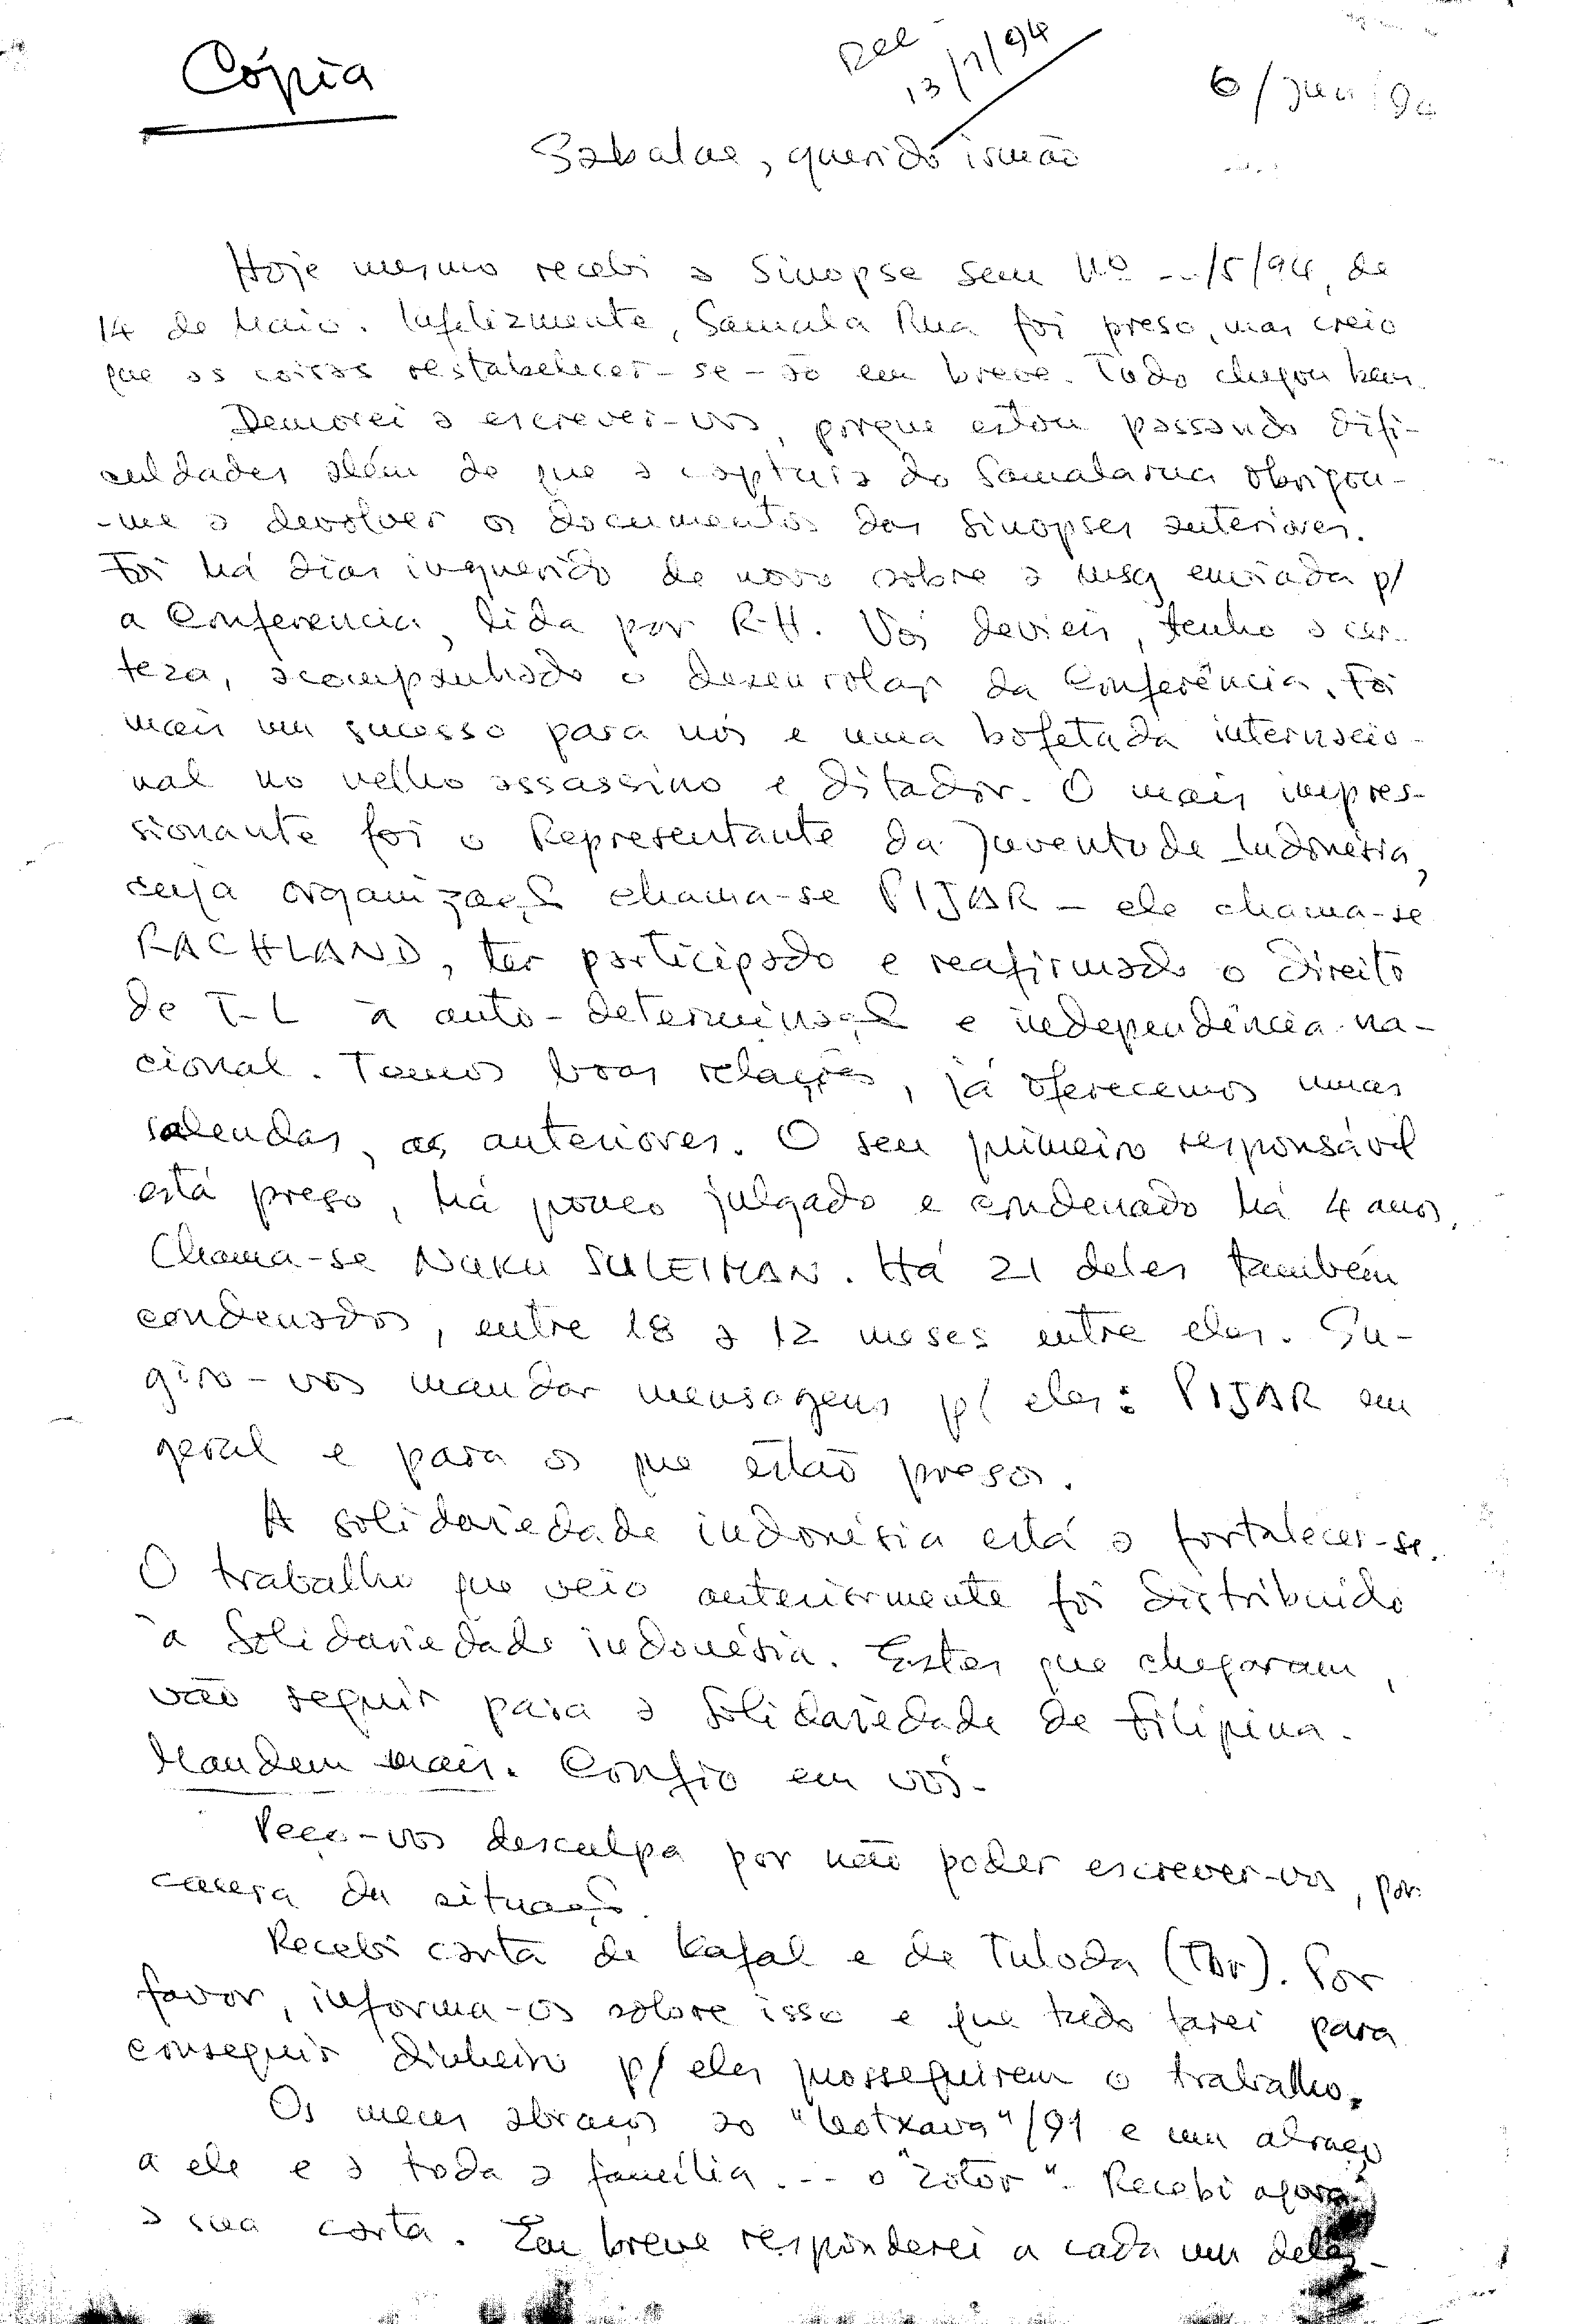 Cópia
Rec
13/7/94
6/Jun/94
Sabalae, querido irmão
Hoje mesmo recebi a Sinopse sem Nº --/5/94, de
14 de Maio. Infelizmente, Samala Rua foi preso, mas creio
que as coisas restabelecer-se-ão em breve. Tudo chegou bem.
Demorei a escrever-vos, porque estou passando difi-
culdades além de que a captura do Samalarua obrigou-
-me a devolver os documentos das Sinopses anteriores.
Foi há dias inquerido de novo sobre a msg enviada p/
a Conferencia, lida por R-H. Vós devieis, tenho a cer-
teza, acompanhado o desenrolar da Conferência. Foi
mais um sucesso para nós e uma bofetada internacio-
nal no velho assassino e ditador. O mais impres-
sionante foi o Representante da Juventude Indonésia,
cuja organização chama-se PIJAR - ele chama-se
RACHLAND, ter participado e reafirmado o direito
de T-L à auto-determinação e independência na-
cional. Temos boas relações, já oferecemos umas
salendas, as anteriores. O seu primeiro responsável
está preso, há pouco julgado e condenado há 4 anos.
Chama-se NUKU SULEIMAN. Há 21 deles também
condenados, entre 18 a 12 meses entre eles. Su-
giro-vos mandar mensagens p/ eles: PIJAR em
geral e para os que estão presos.
A solidariedade indonésia está a fortalecer-se.
O trabalho que veio anteriormente foi distribuido
à Solidariedade indonésia. Estes que chegaram,
vão seguir para a Solidariedade de Filipina.
Mandem mais. Confio em vós.
Peço-vos desculpa por não poder escrever-vos, por
causa da situação.
Recebi carta de Kafal e de Tuloda (Tbr). Por
favor, informa-os sobre isso e que tudo farei para
conseguir dinheiro p/ eles prosseguirem o trabalho.
Os meus abraços ao "            "/91 e um abraço
a ele e a toda a família... o "Zotor". Recebi agora
a sua carta. Em breve responderei a cada um deles.